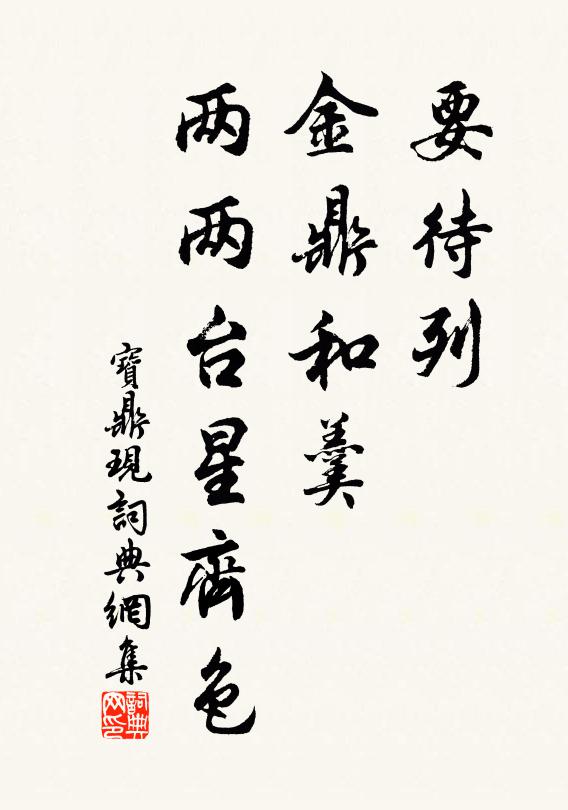 要待列
金鼎和羹
两两台星齊色
寶鼎現詞典網集
詞典网印